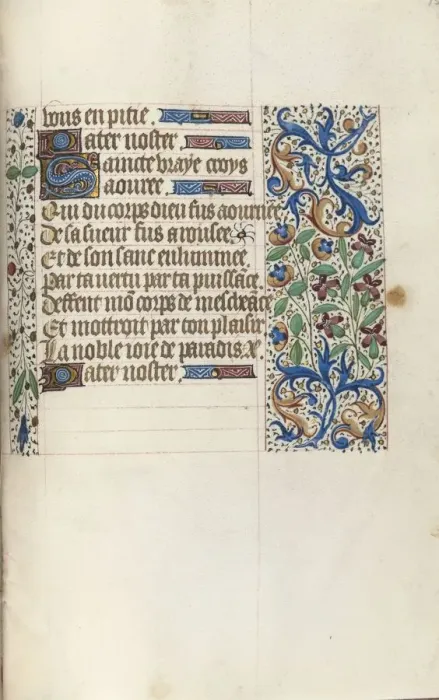 vous en pitie.
Pater noster.
Saincte vraye croys
aouree.
Qui du corps dieu fus aournee
De sa sueur fus arousee
Et de son sanc enluminee
Par ta vertu par ta puissāce
Deffent mō corps de mescheāce
Et mottroit par ton plaisir
La noble ioie de paradis. &c.
Pater noster.